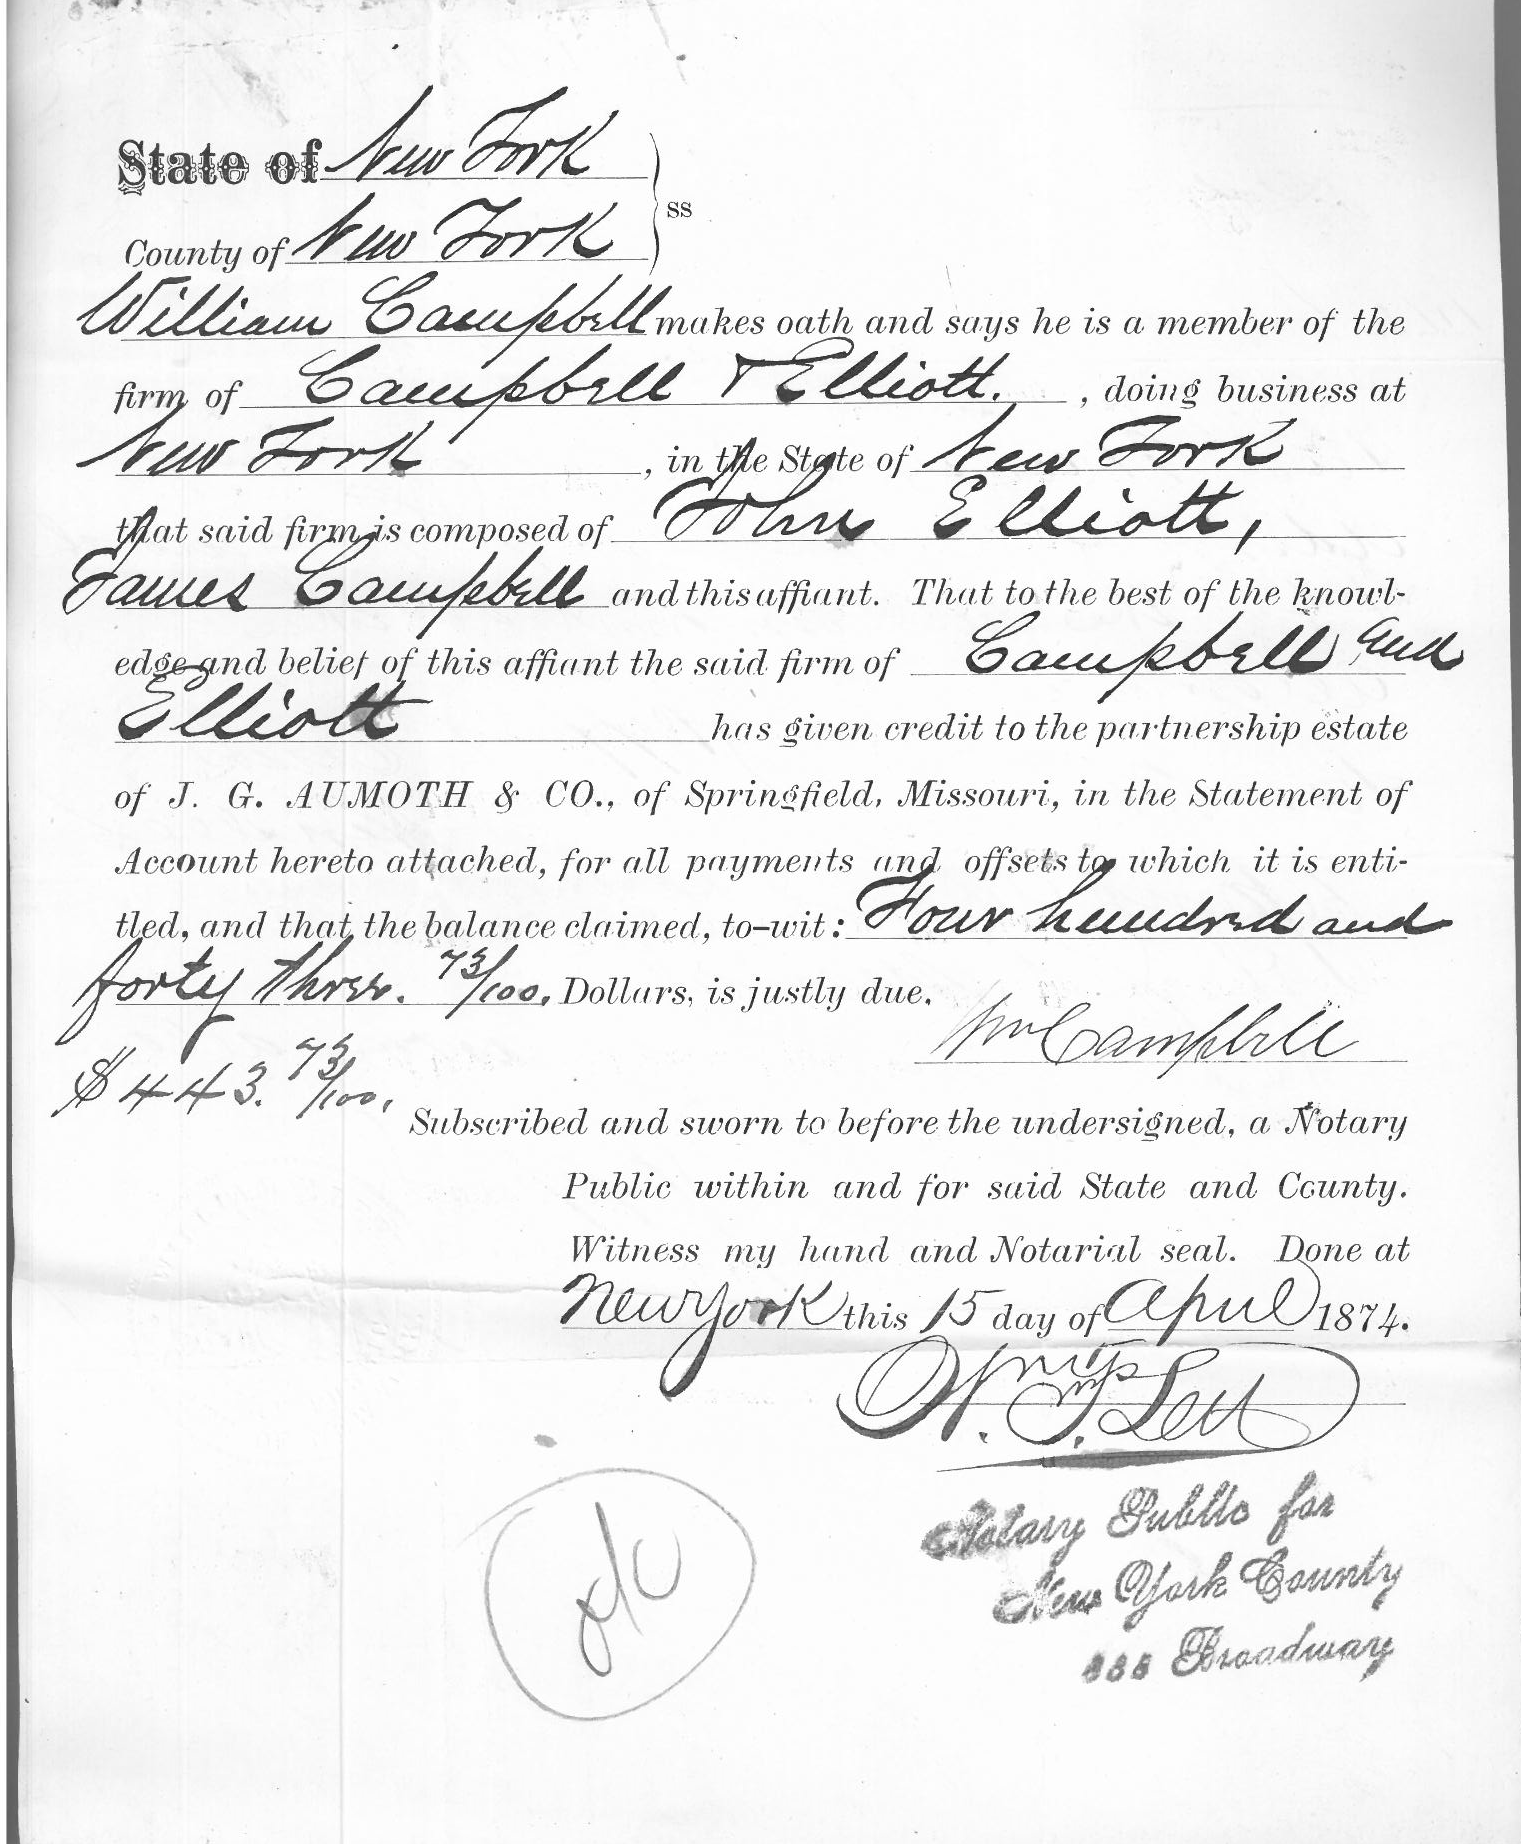 State of New York
County of New York } ss
William Campbell makes oath and says he is a member of the
firm of Campbell & Elliott. , doing business at
New York , in the State of New York
that said firm is composed of John Elliott,
James Campbell and this affiant. That to the best of the knowl-
edge and belief of this affiant the said firm of Campbell and
Elliott has given credit to the partnership estate
of J. G. AUMOTH & CO., of Springfield, Missouri, in the Statement of
Account hereto attached, for all payments and offsets to which it is enti-
tled, and that the balance claimed, to-wit: Four hundred and
forty three. 73/100. Dollars, is justly due.
Wm Campbell
$443. 73/100.
Subscribed and sworn to before the undersigned, a Notary
Public within and for said State and County.
Witness my hand and Notarial seal. Done at
New York this 15 day of April 1874.
Notary Public for
New York County
Broadway